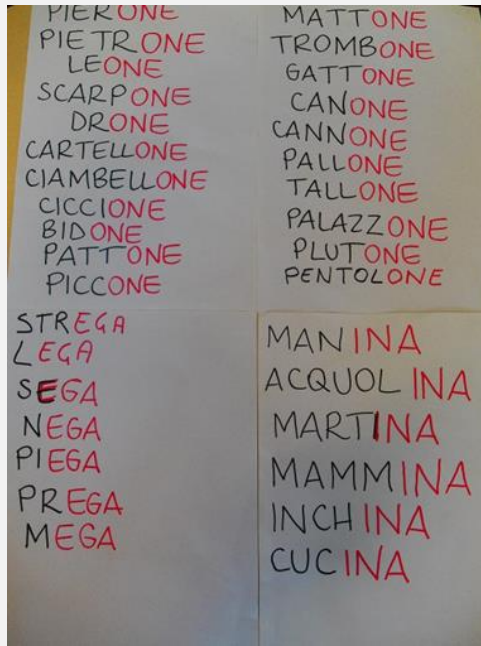 PIERONE
PIETRONE
LEONE
SCARPONE
DRONE
CARTELLONE
CIAMBELLONE
CICCIONE
BIDONE
PATTONE
PICCONE
MATTONE
TROMBONE
GATTONE
CANONE
CANNONE
PALLONE
TALLONE
PALAZZONE
PLUTONE
PENTOLONE
STREGA
LEGA
SEGA
NEGA
PIEGA
PREGA
MEGA
MANINA
ACQUOLINA
MARTINA
MAMMINA
INCHINA
CUCINA